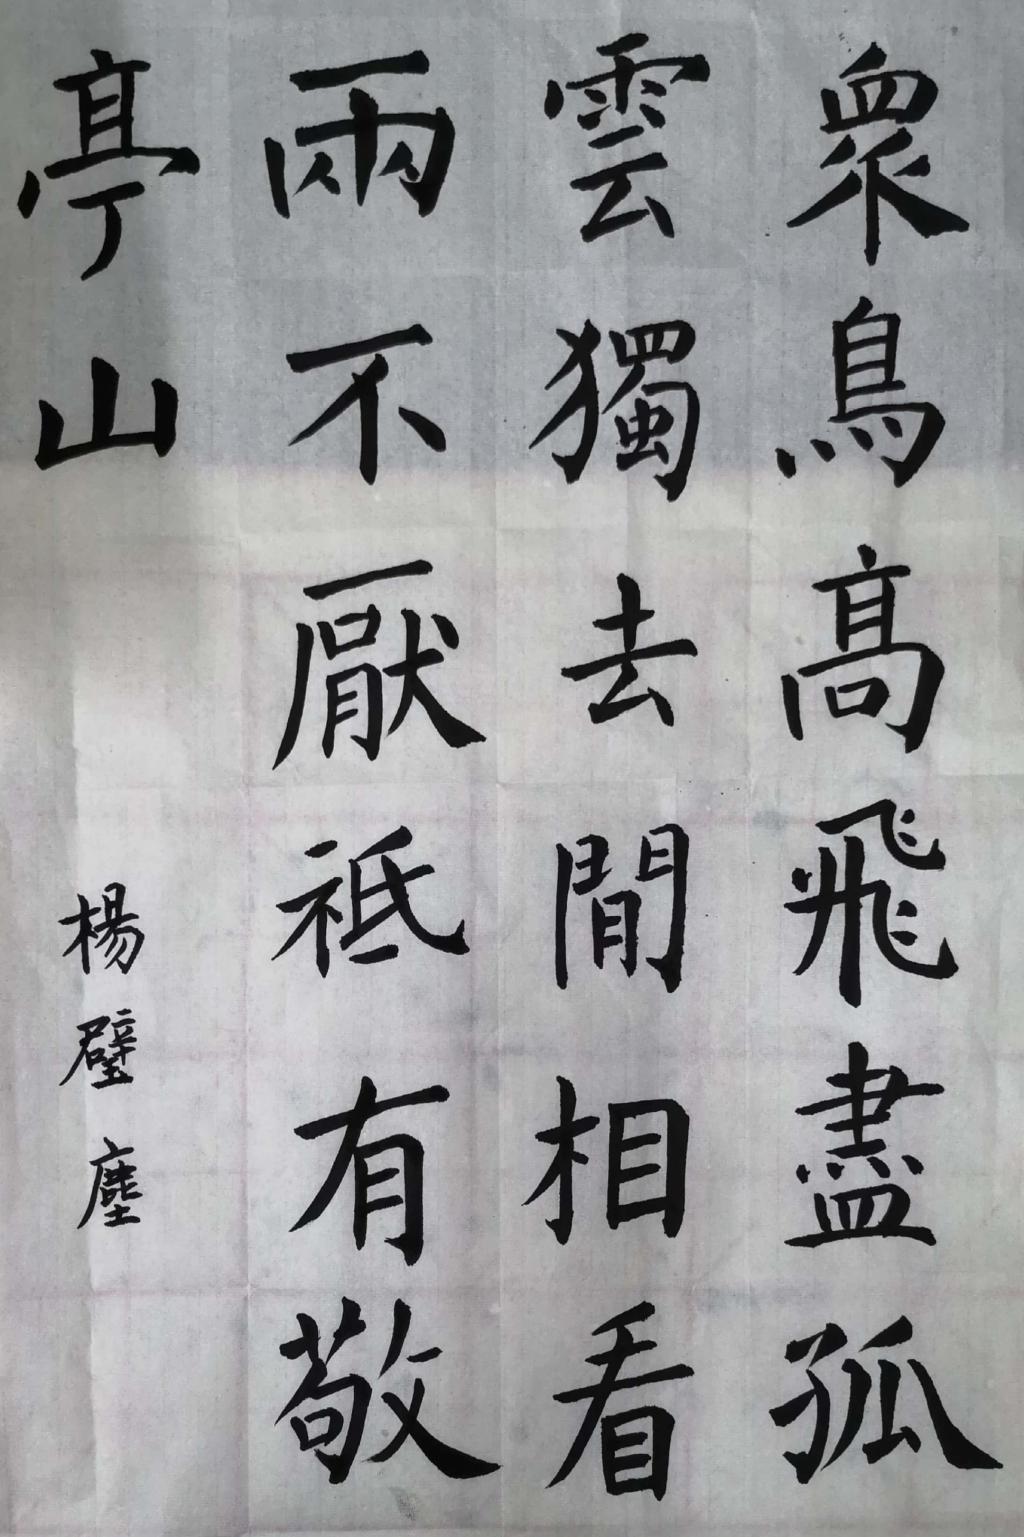 眾鳥高飛盡孤
雲獨去閒相看
兩不厭祗有敬
亭山
楊璧塵